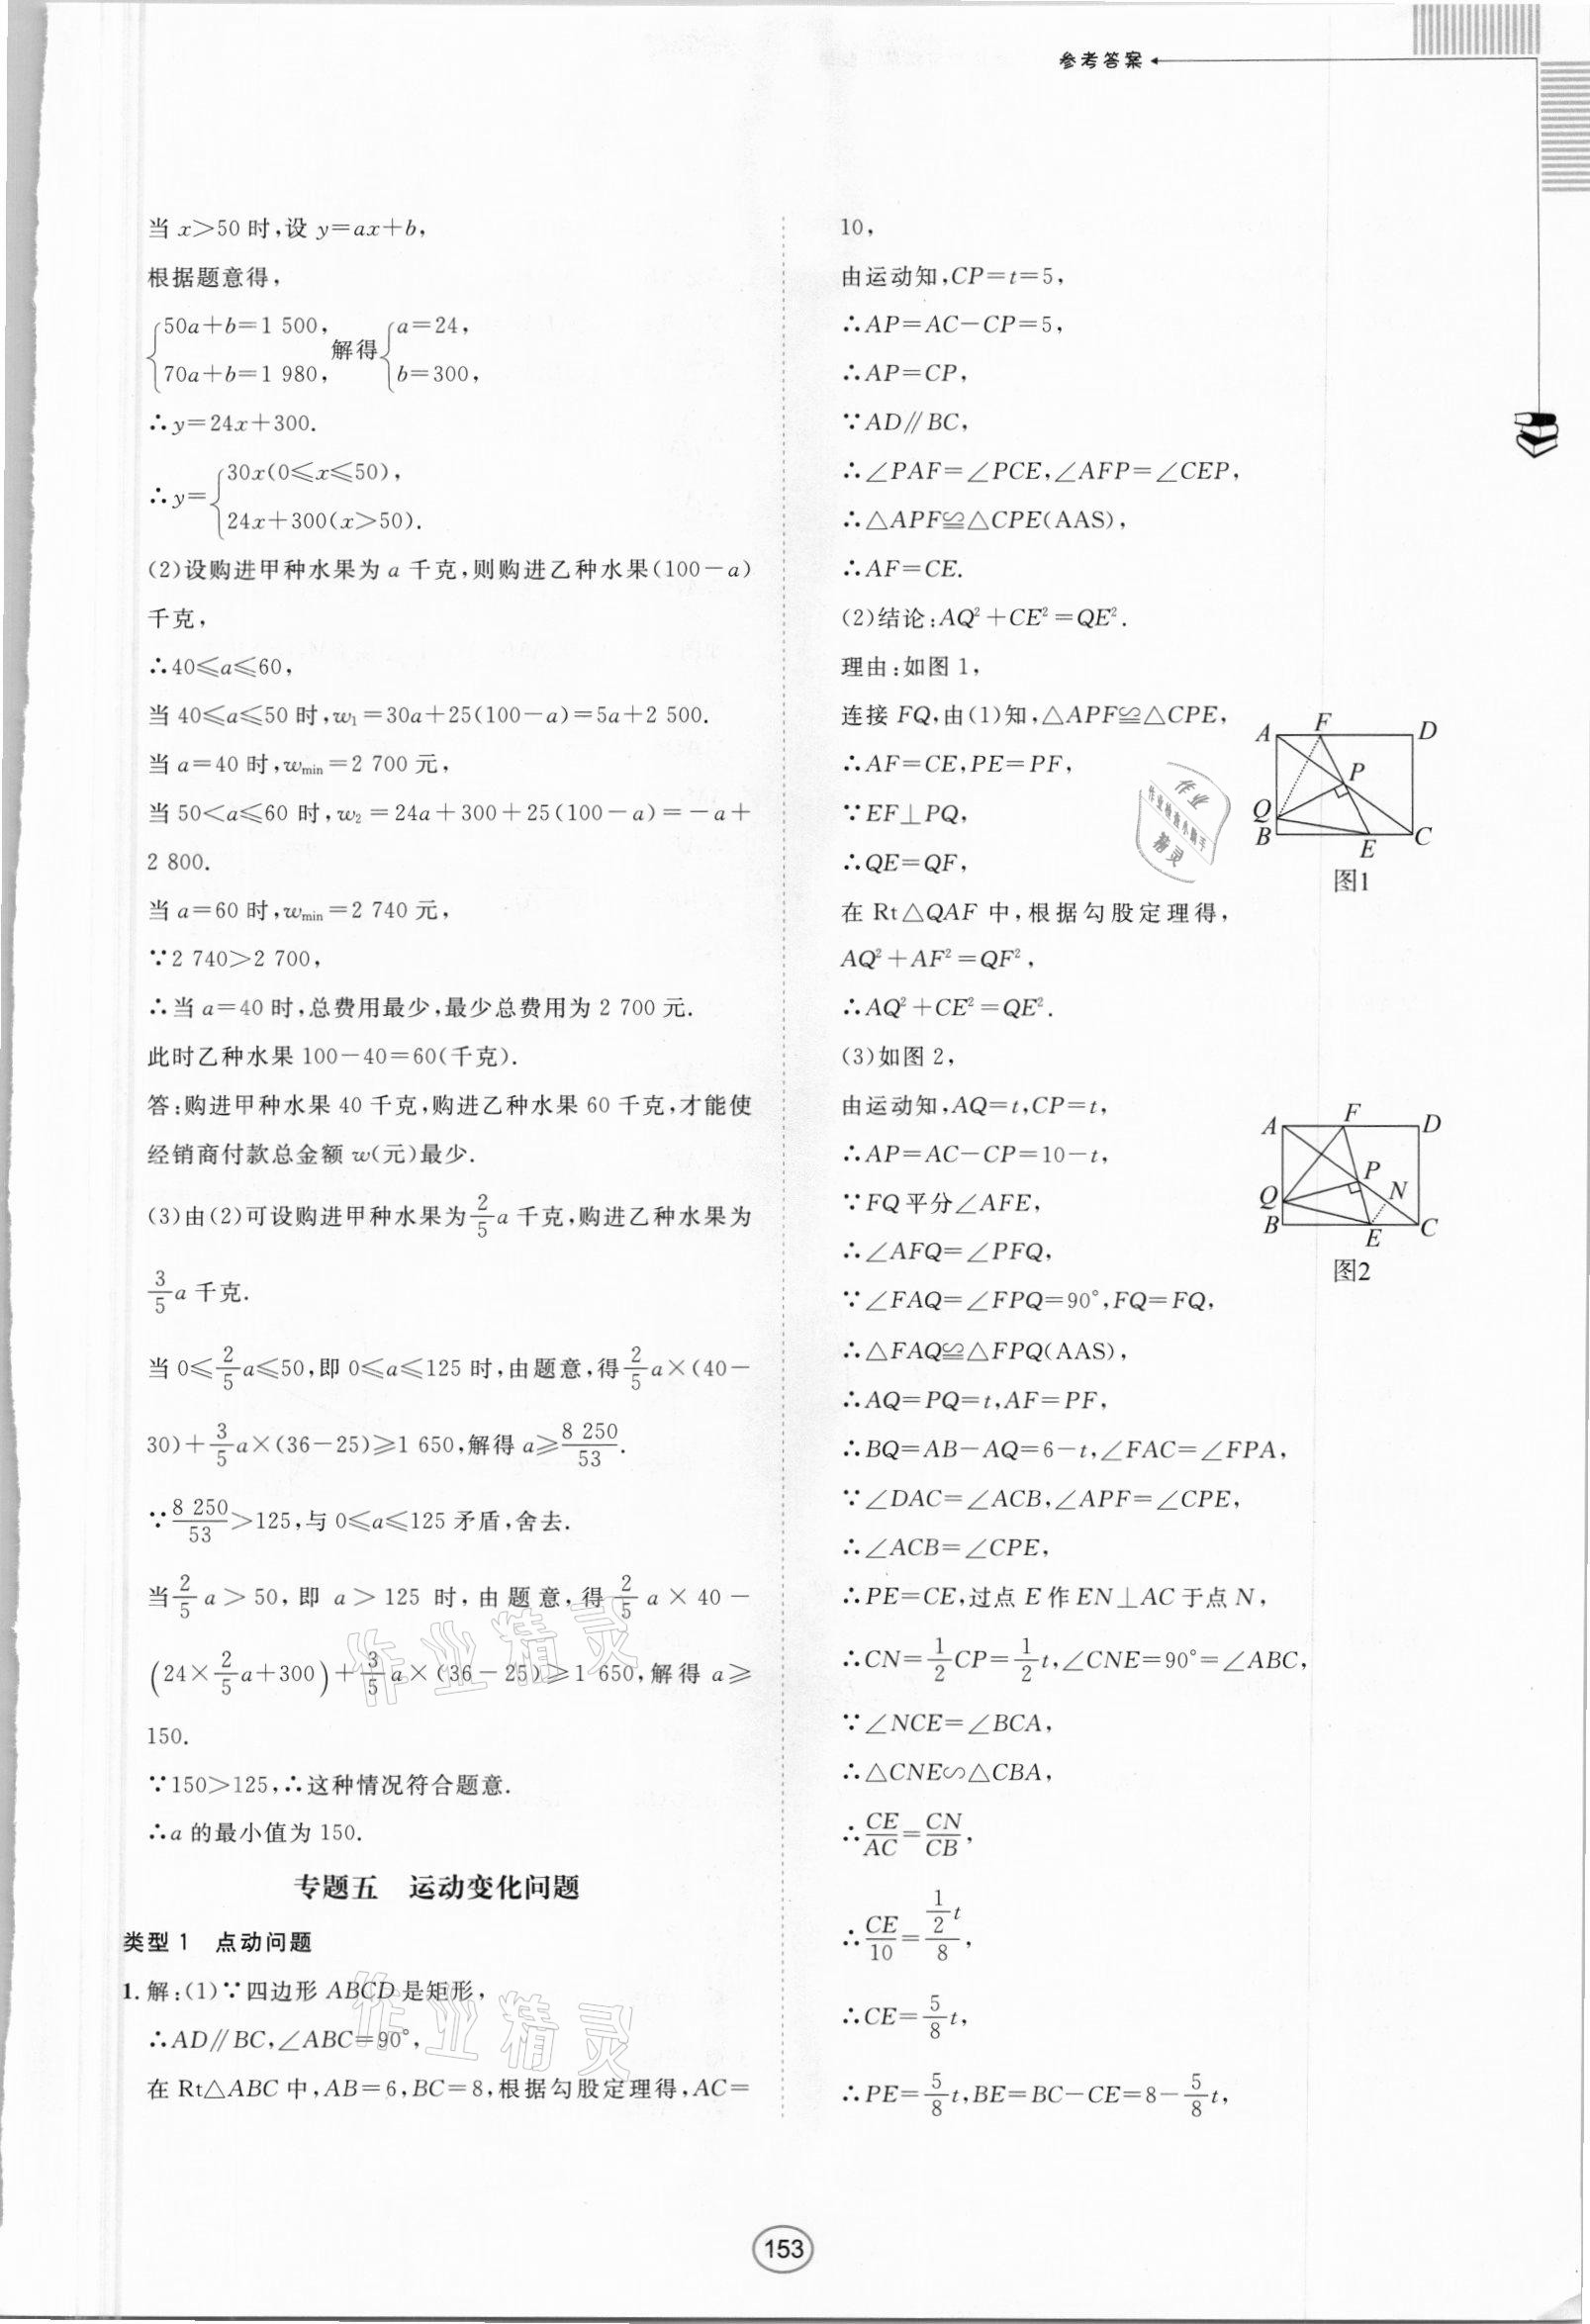 参考答案
当 x>50 时,设 y=ax+b,
根据题意得,
{50a+b=1 500, 70a+b=1 980, 解得{a=24, b=300,
∴y=24x+300.
∴y={30x(0≤x≤50), 24x+300(x>50).
(2)设购进甲种水果为 a 千克,则购进乙种水果(100-a)
千克,
∴40≤a≤60,
当 40≤a≤50 时,w₁=30a+25(100-a)=5a+2 500.
当 a=40 时,wmin=2 700 元,
当 50<a≤60 时,w₂=24a+300+25(100-a)=-a+
2 800.
当 a=60 时,wmin=2 740 元,
∵2 740>2 700,
∴当 a=40 时,总费用最少,最少总费用为 2 700 元.
此时乙种水果 100-40=60(千克).
答:购进甲种水果 40 千克,购进乙种水果 60 千克,才能使
经销商付款总金额 w(元)最少.
(3)由(2)可设购进甲种水果为2/5a 千克,购进乙种水果为
3/5a 千克.
当 0≤2/5a≤50,即 0≤a≤125 时,由题意,得2/5a×(40-
30)+3/5a×(36-25)≥1 650,解得 a≥8 250/53.
∵8 250/53>125,与 0≤a≤125 矛盾,舍去.
当2/5a>50,即 a>125 时,由题意,得2/5a×40-
(24×2/5a+300)+3/5a×(36-25)≥1 650,解得 a≥
150.
∵150>125,∴这种情况符合题意.
∴a 的最小值为 150.
专题五 运动变化问题
类型 1 点动问题
1.解:(1)∵四边形 ABCD 是矩形,
∴AD∥BC,∠ABC=90°,
在 Rt△ABC 中,AB=6,BC=8,根据勾股定理得,AC=
10,
由运动知,CP=t=5,
∴AP=AC-CP=5,
∴AP=CP,
∵AD∥BC,
∴∠PAF=∠PCE,∠AFP=∠CEP,
∴△APF≌△CPE(AAS),
∴AF=CE.
(2)结论:AQ²+CE²=QE².
理由:如图 1,
连接 FQ,由(1)知,△APF≌△CPE,
∴AF=CE,PE=PF,
∵EF⊥PQ,
∴QE=QF,
在 Rt△QAF 中,根据勾股定理得,
AQ²+AF²=QF²,
∴AQ²+CE²=QE².
A F D P Q B E C
图1
(3)如图 2,
由运动知,AQ=t,CP=t,
∴AP=AC-CP=10-t,
∵FQ 平分∠AFE,
∴∠AFQ=∠PFQ,
∵∠FAQ=∠FPQ=90°,FQ=FQ,
∴△FAQ≌△FPQ(AAS),
∴AQ=PQ=t,AF=PF,
∴BQ=AB-AQ=6-t,∠FAC=∠FPA,
∵∠DAC=∠ACB,∠APF=∠CPE,
∴∠ACB=∠CPE,
∴PE=CE,过点 E 作 EN⊥AC 于点 N,
∴CN=1/2CP=1/2t,∠CNE=90°=∠ABC,
∵∠NCE=∠BCA,
∴△CNE∽△CBA,
∴CE/AC=CN/CB,
∴CE/10=(1/2t)/8,
∴CE=5/8t,
∴PE=5/8t,BE=BC-CE=8-5/8t,
A F D P N Q B E C
图2
作业
作业检查小助手
精灵
作业精灵
作业精灵
153